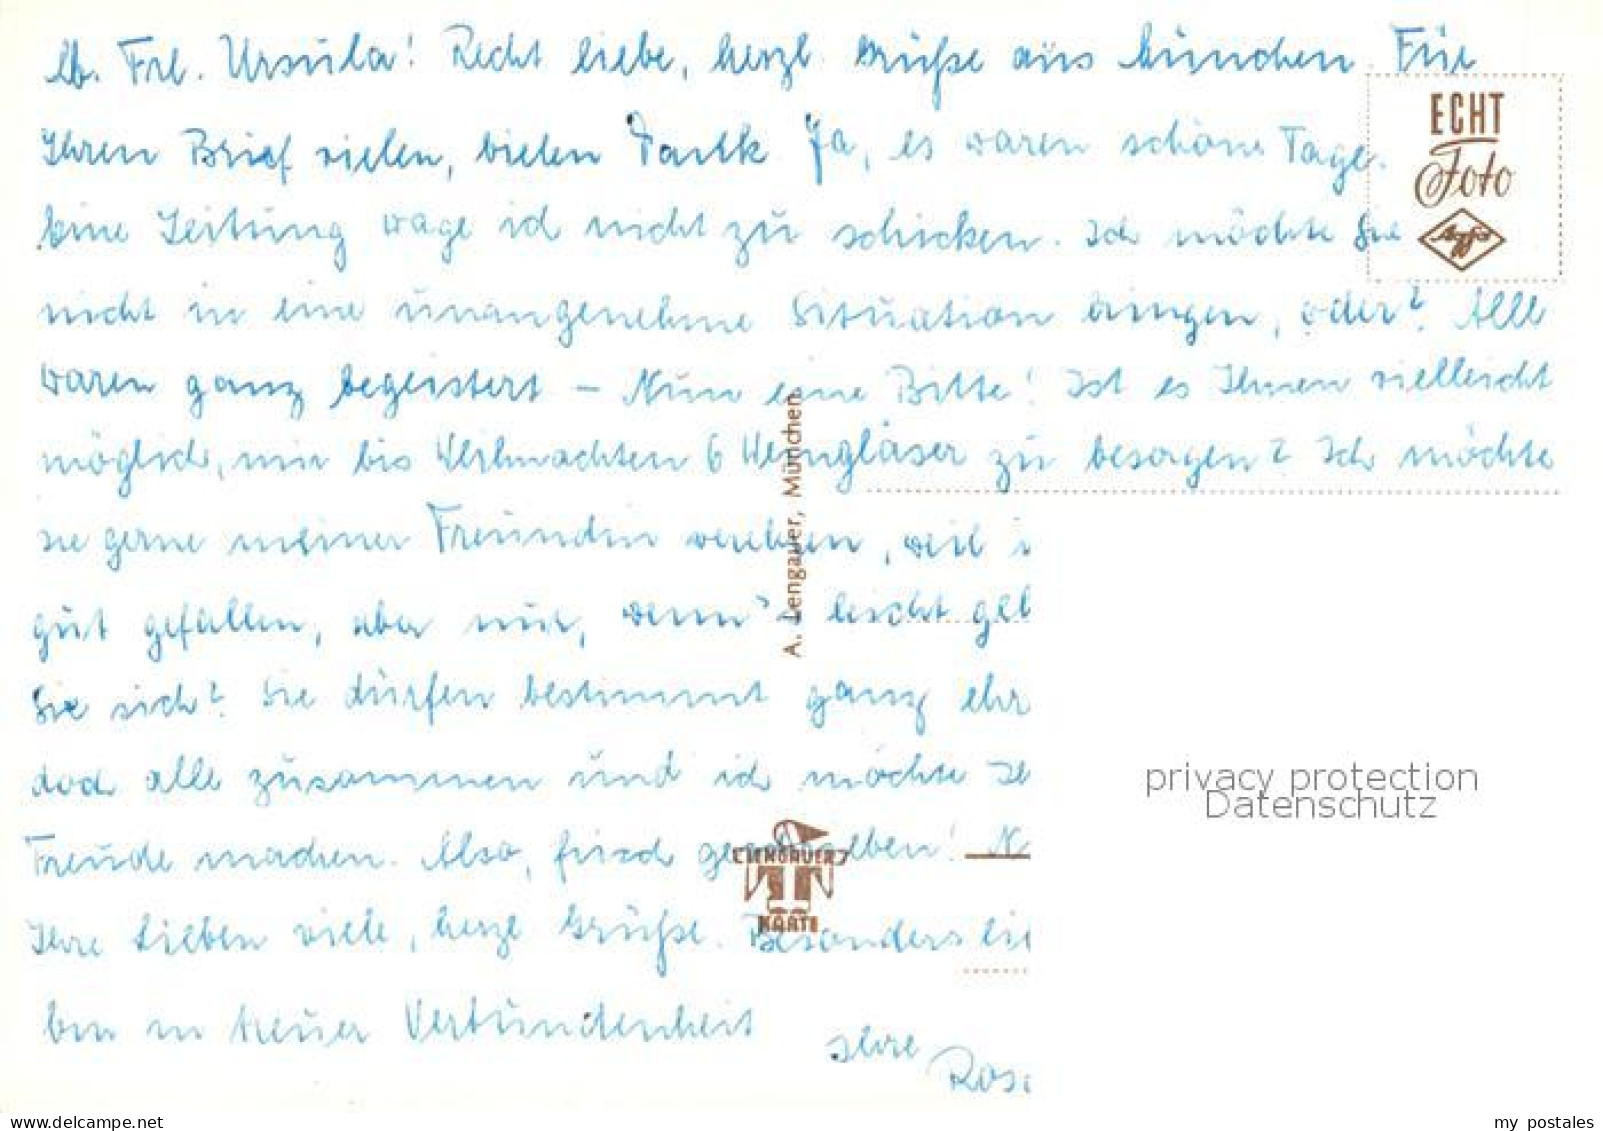 lb. Frl. Ursula! Recht liebe, herzl. Grüße aus München. Für
Ihren Brief vielen, vielen Dank. Ja, es waren schöne Tage.
Eine Zeitung wage ich nicht zu schicken. Ich möchte Sie
nicht in eine unangenehme Situation bringen, oder? Alle
waren ganz begeistert – Nun eine Bitte! Ist es Ihnen vielleicht
möglich, mir bis Weihnachten 6 Weingläser zu besorgen? Ich möchte
sie gerne meiner Freundin verehren, weil
gut gefallen, aber nur, wenn's leicht geh
Sie sich? Sie dürfen bestimmt ganz ehr
doch alle zusammen und ich möchte Je
Freude machen. Also, frisch gegeben! N
Ihre Lieben viele, herzl. Grüße. Besonders lie
bin in treuer Verbundenheit
Ihre
Ros
ECHT
Foto
Agfa
A. Lengauer, München
LENGAUER
KARTE
privacy protection
Datenschutz
www.delcampe.net
my_postales